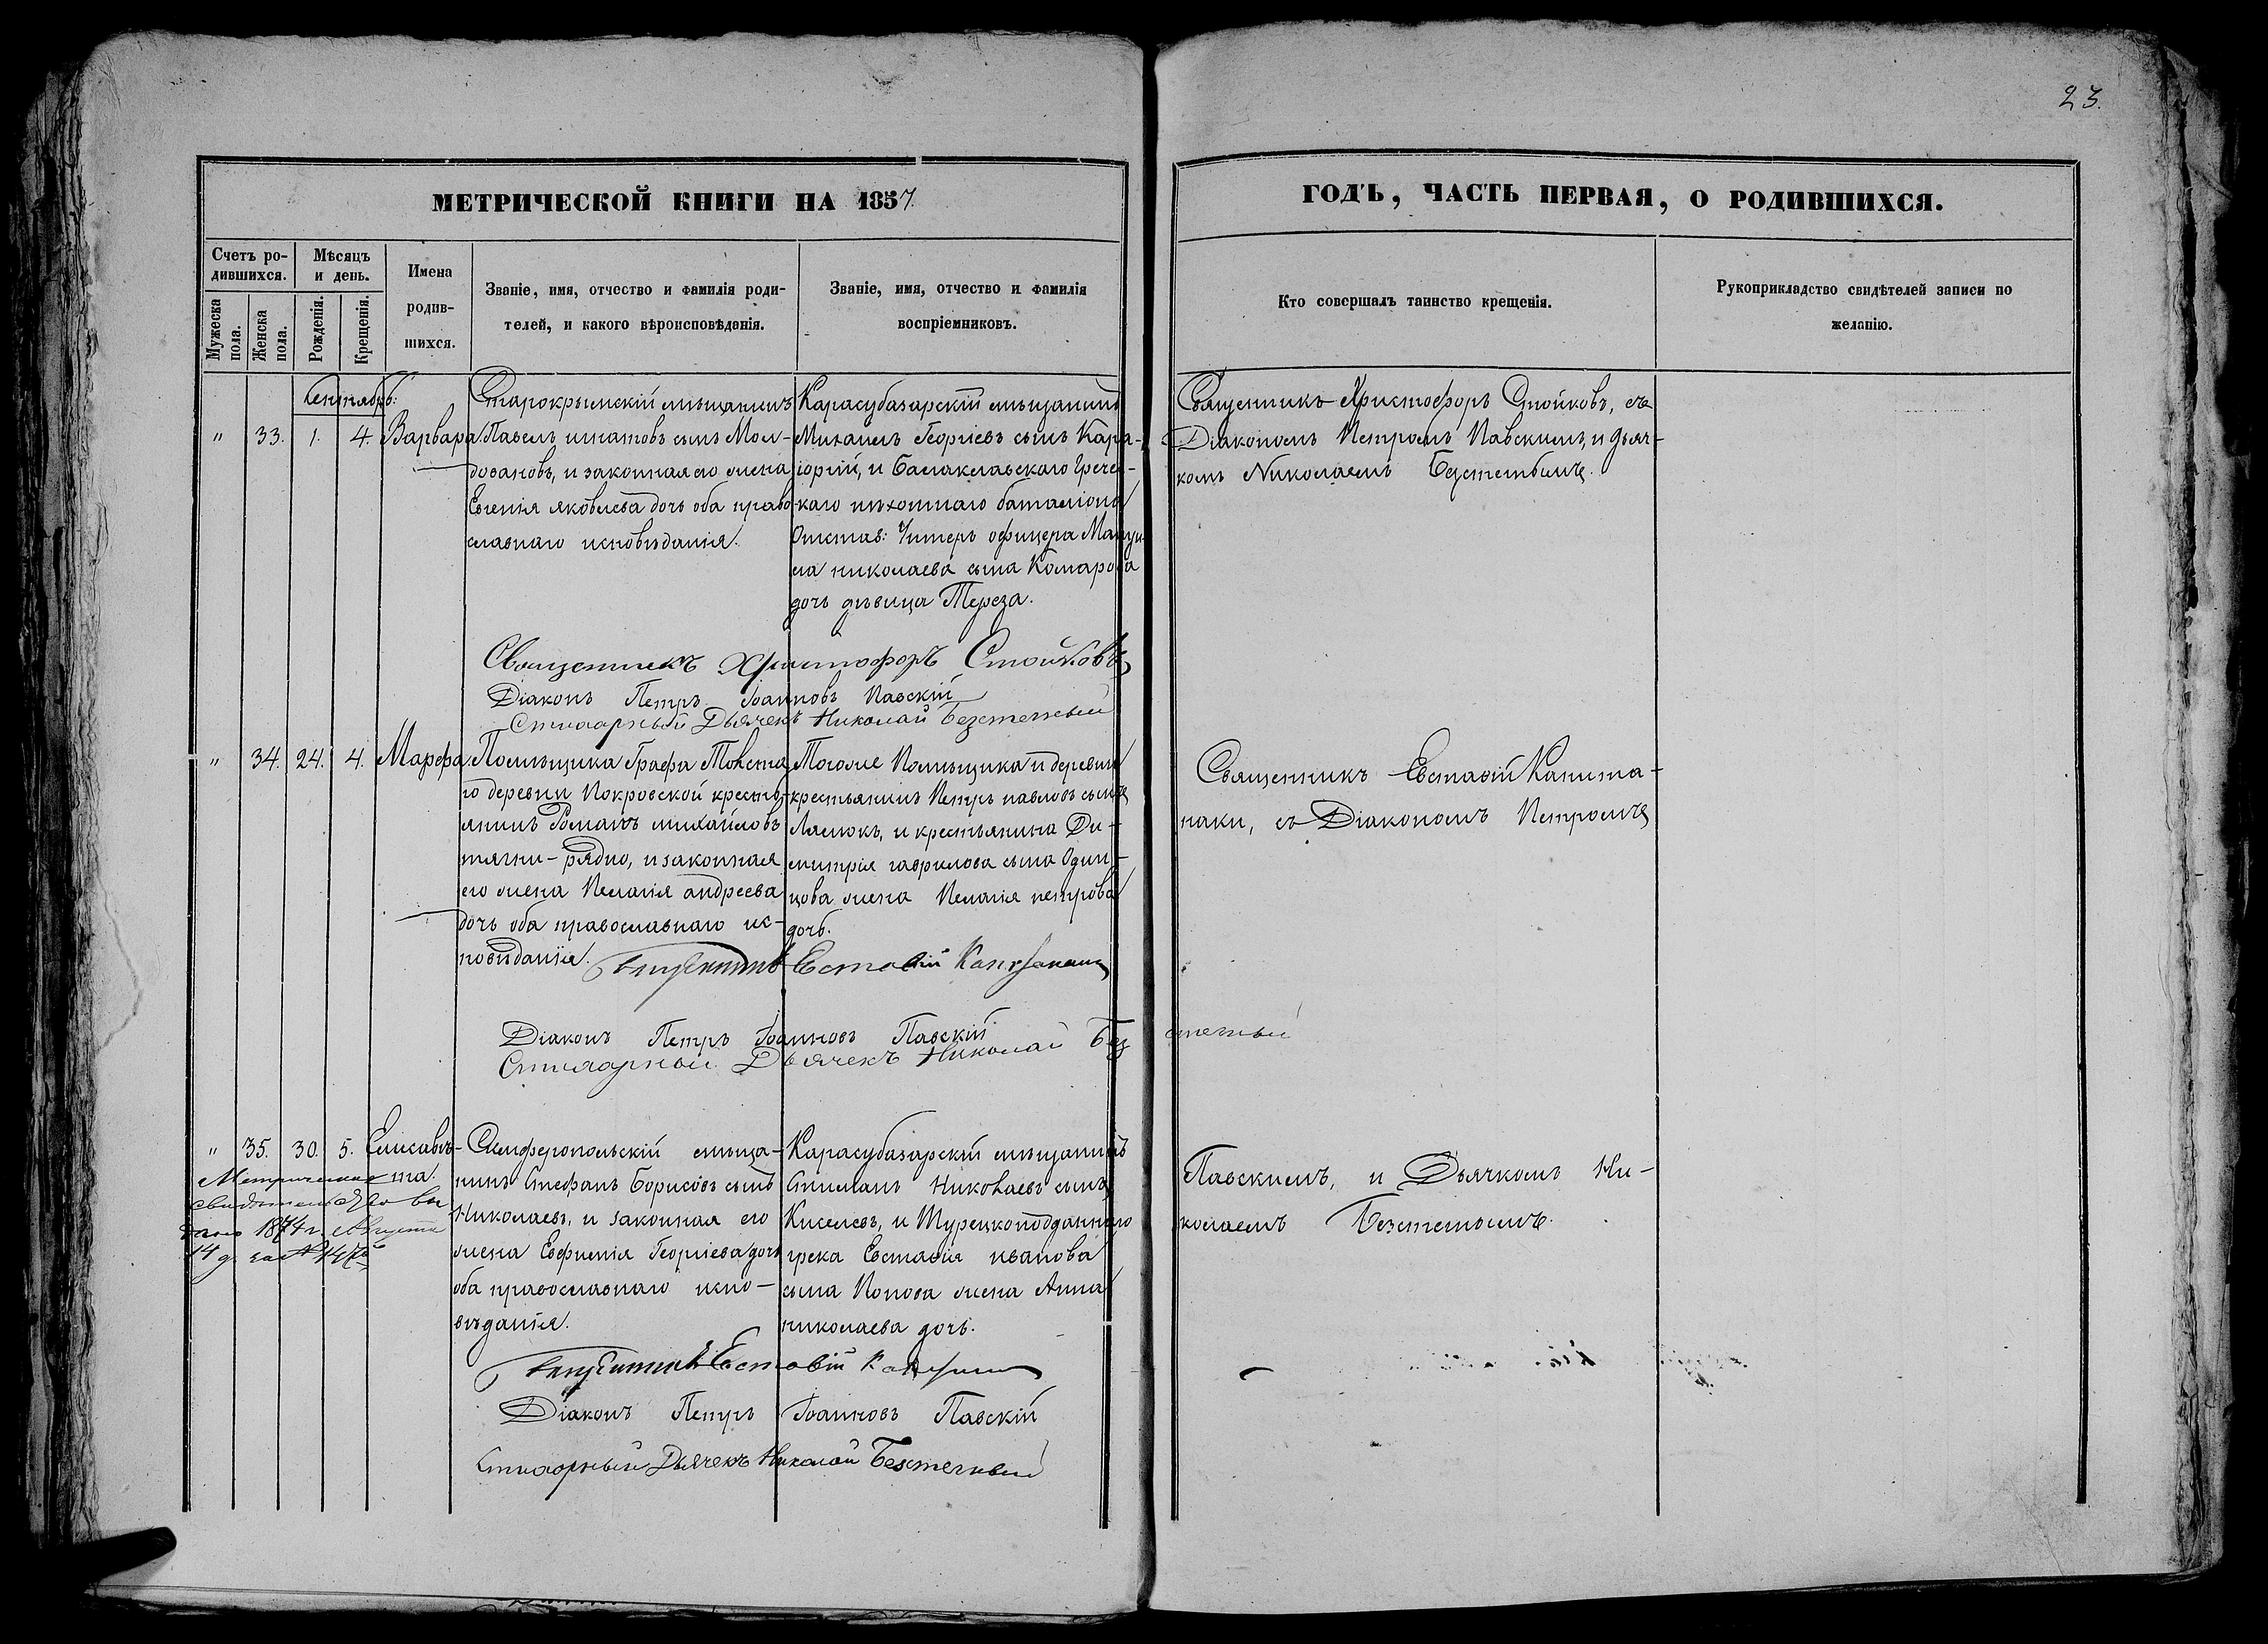 23.
МЕТРИЧЕСКОЙ КНИГИ НА 1857.
ГОДЪ, ЧАСТЬ ПЕРВАЯ, О РОДИВШИХСЯ.
Счетъ ро-
дившихся.
Мужеска пола.
Женска пола.
Мѣсяцъ
и день.
Рожденія.
Крещенія.
Имена
родив-
шихся.
Званіе, имя, отчество и фамилія роди-
телей, и какого вѣроисповѣданія.
Званіе, имя, отчество и фамилія
воспріемниковъ.
Кто совершалъ таинство крещенія.
Рукоприкладство свидѣтелей записи по
желанію.
Сентябрь:
" 33. 1. 4. Варвара.
Старокрымскій мѣщанинъ
Павелъ игнатовъ сынъ Мол-
довановъ, и законная его жена
Евгенія яковлева дочь оба право-
славнаго исповѣданія.
Карасубазарскій мѣщанинъ
Михаилъ Георгіевъ сынъ Кара-
іоргій, и Балаклавскаго Гречес-
каго пѣхотнаго баталіона
Отстав: Унтеръ офицера
николаева сына Комарова
дочь дѣвица Тереза.
Священникъ Христофоръ Стойковъ, съ
Діакономъ Петромъ Павскимъ, и дьяч-
комъ Николаемъ Безстетнымъ.
Священникъ Христофоръ Стойковъ
Діаконъ Петръ Іоанновъ Павскій
Стихарный Дьячекъ Николай
" 34. 24. 4. Марфа.
Помѣщика Графа
деревни Покровской кресть-
янинъ Романъ михайловъ
и законная
его жена Пелагія андреева
дочь оба православнаго ис-
повѣданія.
Тогоже Помѣщика и деревни
крестьянинъ Петръ павловъ сынъ
и крестьянина Ди-
митрія гаврилова сына Один-
цова жена Пелагія петрова
дочь.
Священникъ Евстафій Капита-
наки, съ Діакономъ Петромъ
Священникъ Евстафій
Діаконъ Петръ Іоанновъ Павскій
Стихарный Дьячекъ Николай
" 35. 30. 5. Елисаве-
та.
Метрическое
свидѣтельство вы
дано 1874 г. Августа
14 д. за №
Симферопольскій мѣща-
нинъ Стефанъ Борисовъ сынъ
Николаевъ, и законная его
жена Евфимія Георгіева дочь
оба православнаго испо-
вѣданія.
Карасубазарскій мѣщанинъ
Николаевъ сынъ
Киселевъ, и Турецкоподданнаго
грека Евстафія иванова
сына Попова жена Анна
николаева дочь.
Павскимъ, и Дьячкомъ Ни-
колаемъ
Священникъ Евстафій
Діаконъ Петръ Іоанновъ Павскій
Стихарный Дьячекъ Николай